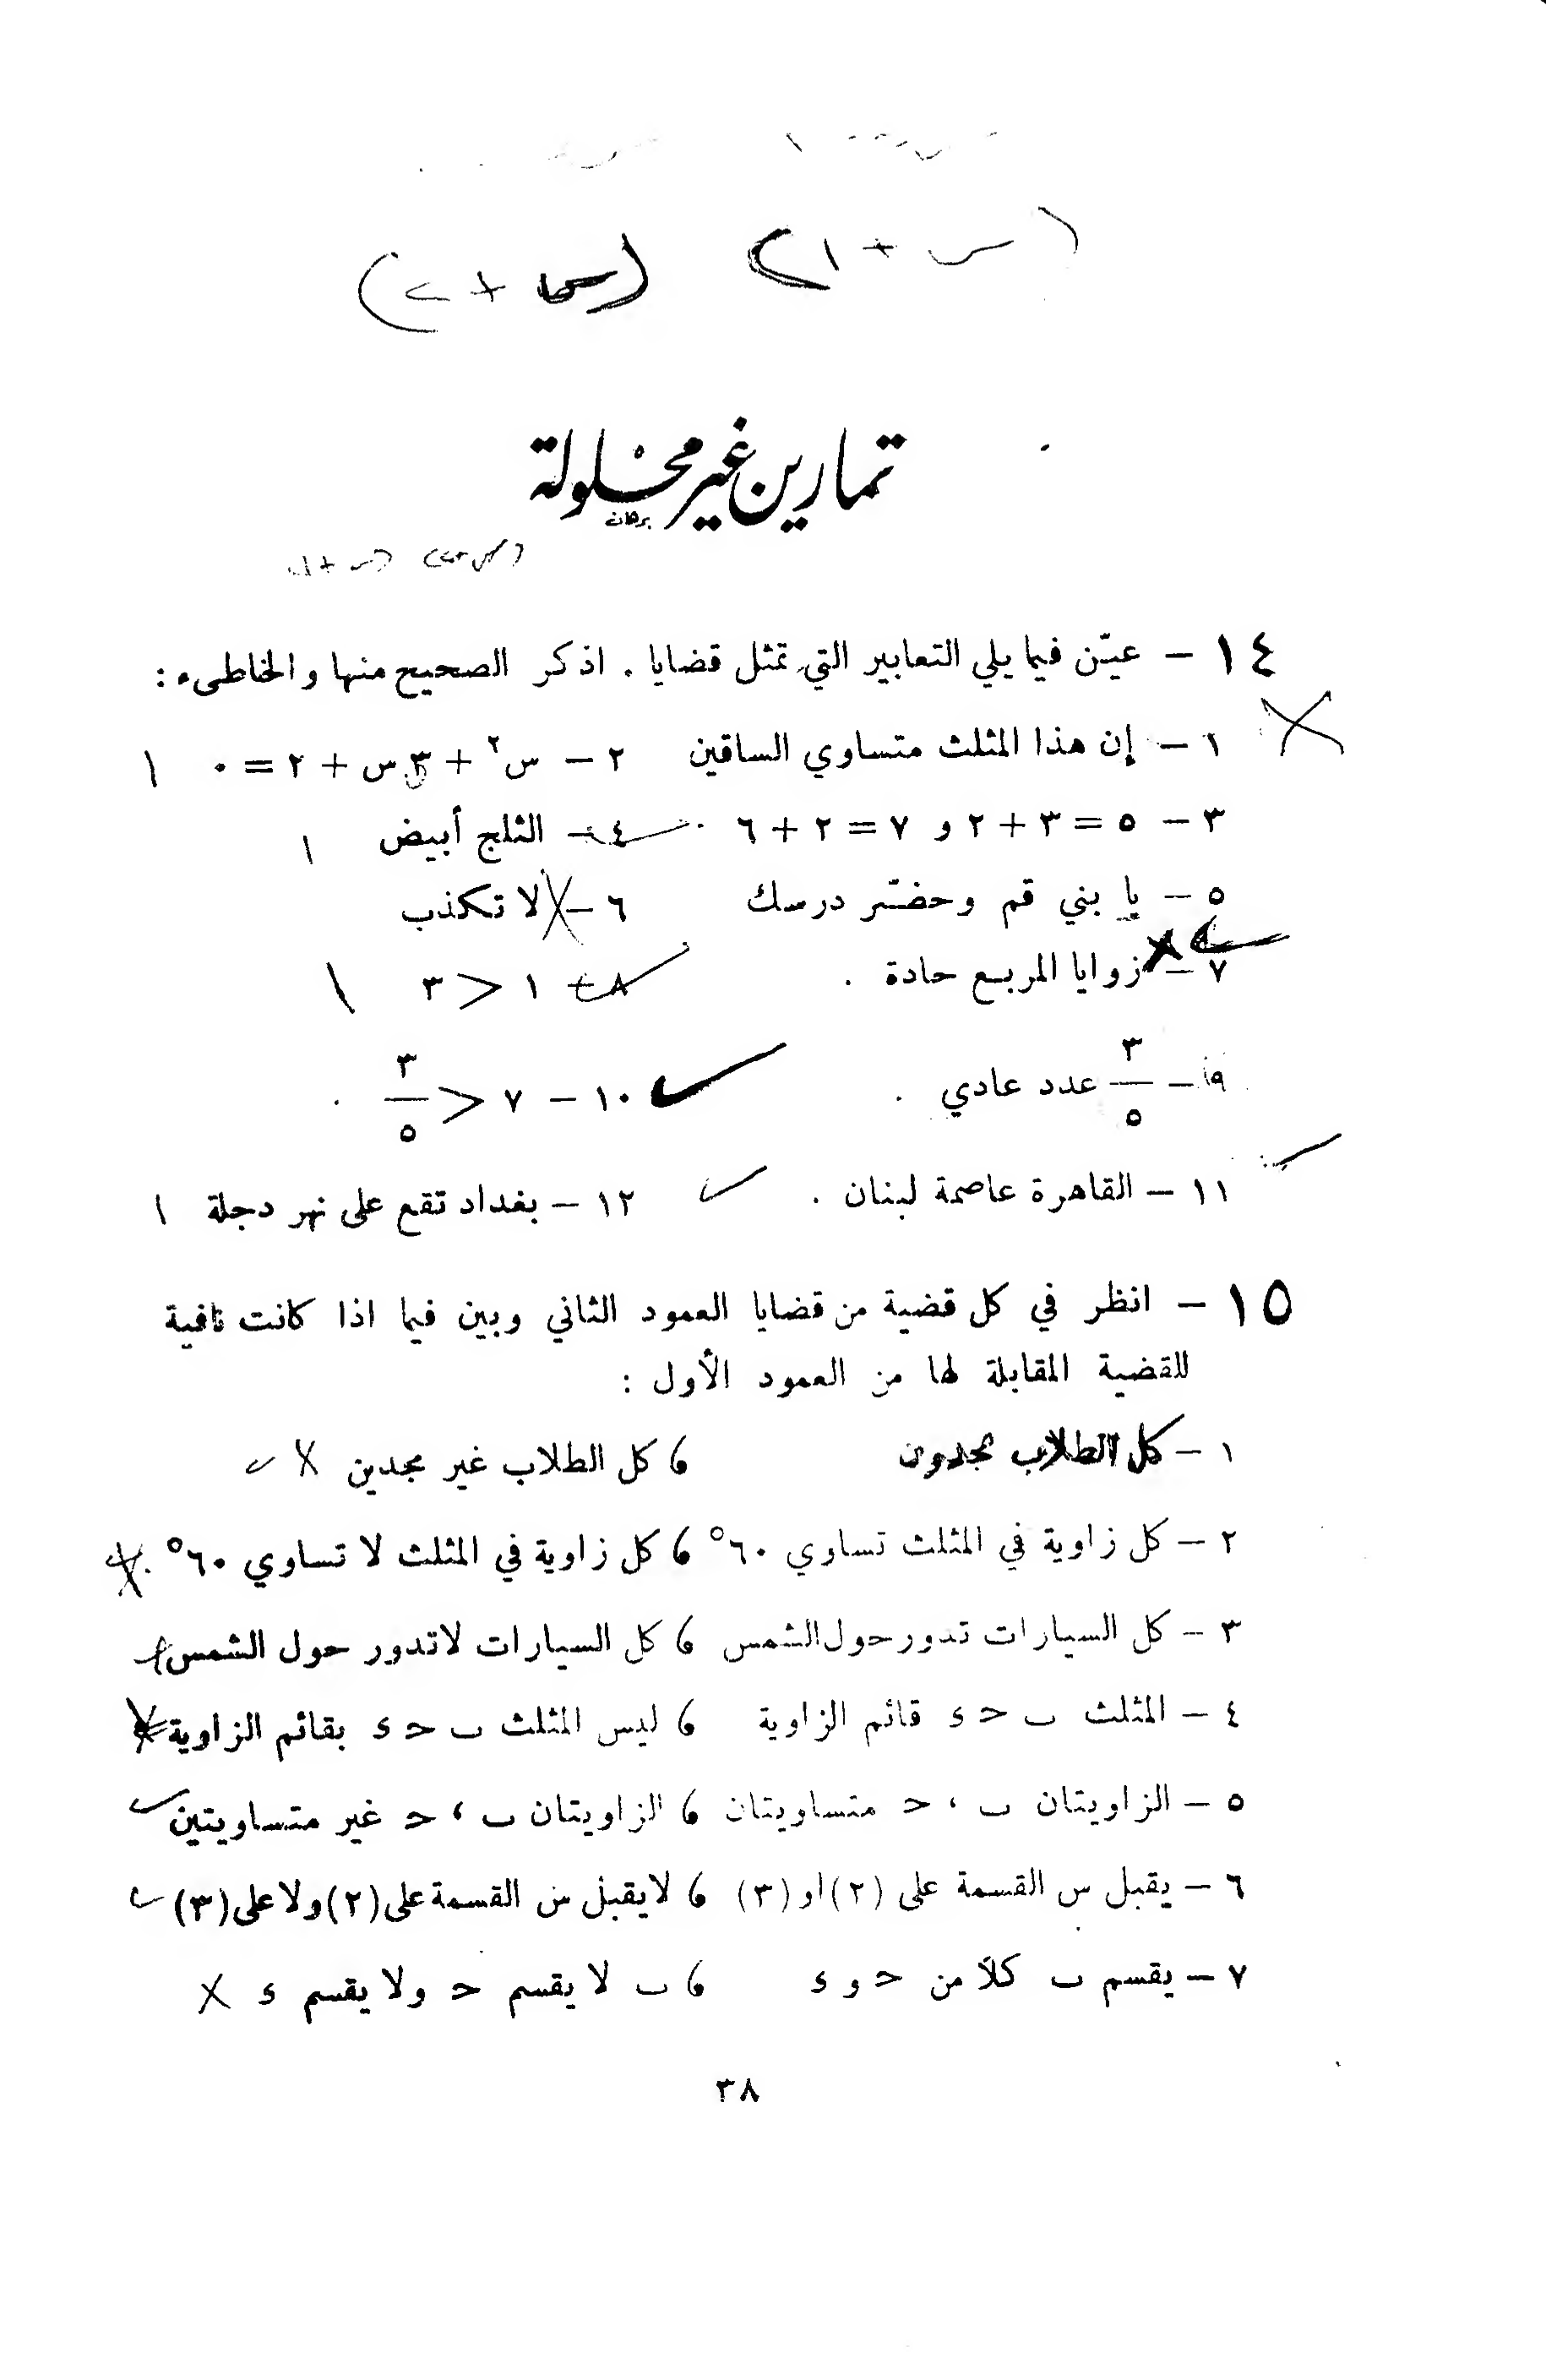 (س + ١) (س + ٢)
تمارين غير محلولة
برهان
١٤ – عيّن فيما يلي التعابير التي تمثل قضايا . اذكر الصحيح منها والخاطىء :
١ – إن هذا المثلث متساوي الساقين ٢ – س٢ + ٣ س + ٢ = ٠
٣ – ٥ = ٣ + ٢ و ٧ = ٢ + ٦ ٤ – الثلج أبيض
٥ – يا بني قم وحضّر درسك ٦ – لا تكذب
٧ – زوايا المربع حادة . ٨ – ١ > ٣
٩ – ٣/٥ عدد عادي . ١٠ – ٧ > ٣/٥ .
١١ – القاهرة عاصمة لبنان . ١٢ – بغداد تقع على نهر دجلة
١٥ – انظر في كل قضية من قضايا العمود الثاني وبين فيما اذا كانت نافية
للقضية المقابلة لها من العمود الأول :
١ – كل الطلاب مجدون ، كل الطلاب غير مجدين
٢ – كل زاوية في المثلث تساوي ٦٠° ، كل زاوية في المثلث لا تساوي ٦٠° .
٣ – كل السيارات تدور حول الشمس ، كل السيارات لا تدور حول الشمس
٤ – المثلث ب ح د قائم الزاوية ، ليس المثلث ب ح د بقائم الزاوية
٥ – الزاويتان ب ، ح متساويتان ، الزاويتان ب ، ح غير متساويتين
٦ – يقبل س القسمة على (٢) او (٣) ، لا يقبل س القسمة على (٢) ولا على (٣)
٧ – يقسم ب كلاً من ح و د ، ب لا يقسم ح ولا يقسم د
٣٨